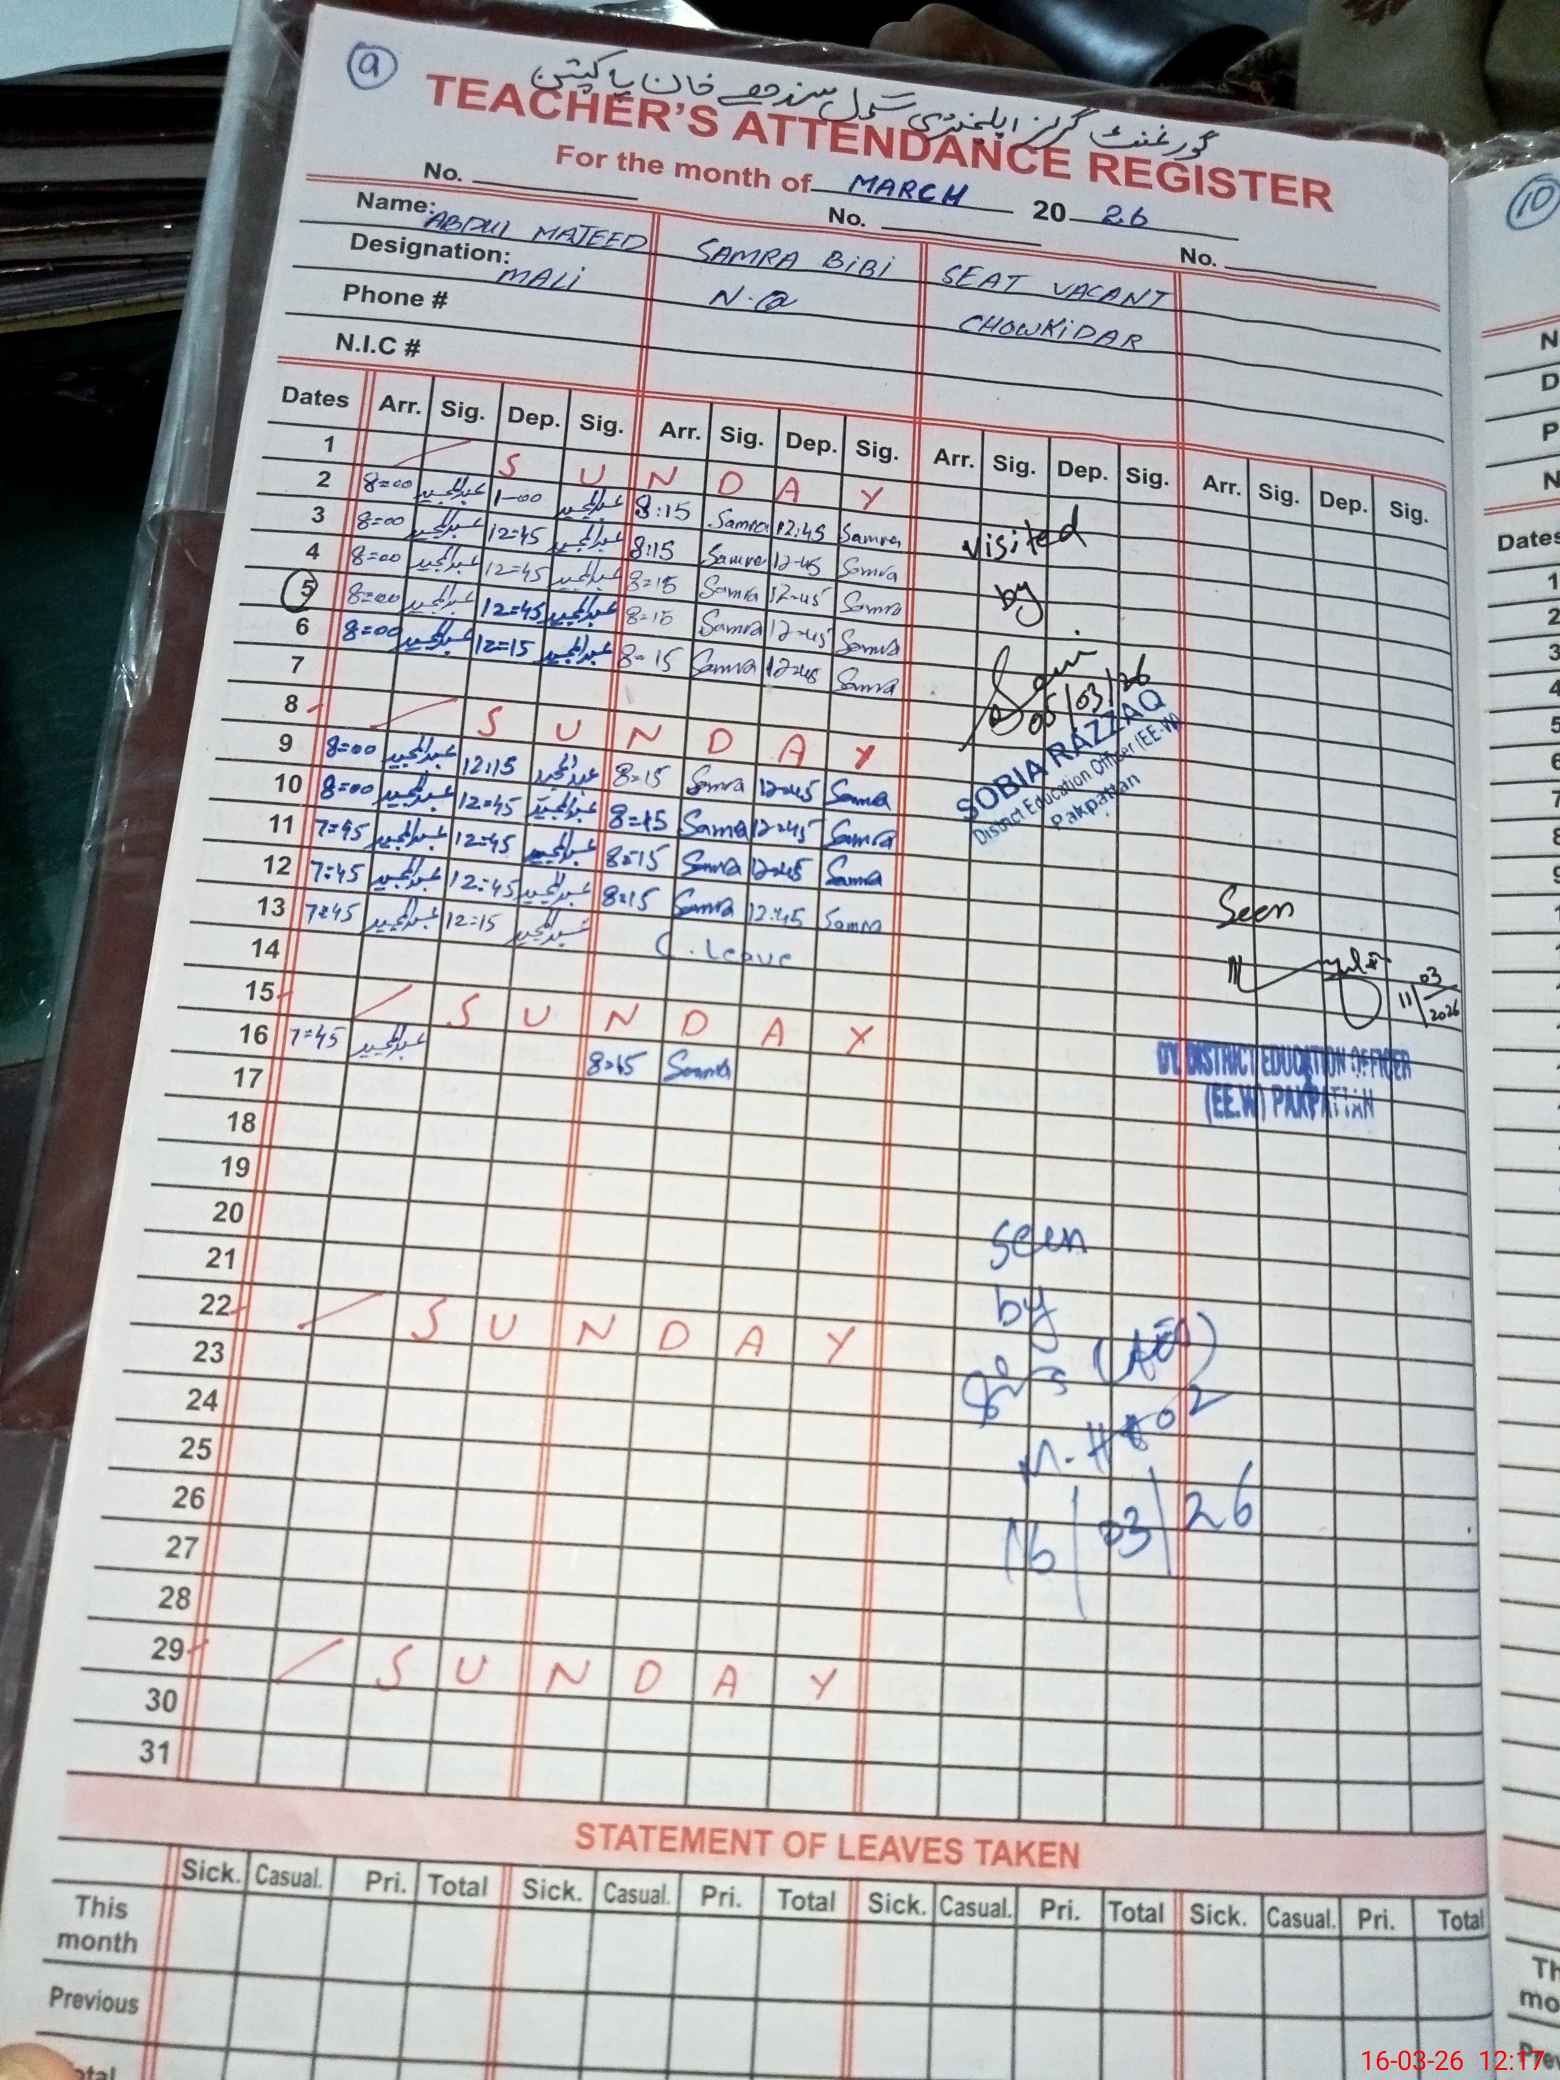 9
گورنمنٹ گرلز ایلیمنٹری سکول سندھے خان پاکپتن
TEACHER'S ATTENDANCE REGISTER
For the month of MARCH 20 26
No. No. No.
Name: ABDUL MAJEED SAMRA BIBI SEAT VACANT
Designation: MALI N.Q CHOWKIDAR
Phone #
N.I.C #
Dates Arr. Sig. Dep. Sig. Arr. Sig. Dep. Sig. Arr. Sig. Dep. Sig. Arr. Sig. Dep. Sig.
1 S U N D A Y
2 8=00 عبدالمجید 1-00 عبدالمجید 8:15 Samra 12:45 Samra
3 8=00 عبدالمجید 12=45 عبدالمجید 8:15 Samra 12-45 Samra
4 8=00 عبدالمجید 12=45 عبدالمجید 8=15 Samra 12-45 Samra
5 8=00 عبدالمجید 12=45 عبدالمجید 8=15 Samra 12-45 Samra
6 8=00 عبدالمجید 12=15 عبدالمجید 8-15 Samra 12-45 Samra
7
8 S U N D A Y
9 8=00 عبدالمجید 12:15 عبدالمجید 8=15 Samra 12-45 Samra
10 8=00 عبدالمجید 12=45 عبدالمجید 8=15 Samra 12-45 Samra
11 7=45 عبدالمجید 12=45 عبدالمجید 8=15 Samra 12-45 Samra
12 7=45 عبدالمجید 12=45 عبدالمجید 8=15 Samra 12:45 Samra
13 7=45 عبدالمجید 12=15 عبدالمجید C. Leave
14
15 S U N D A Y
16 7=45 عبدالمجید 8=15 Samra
17
18
19
20
21
22 S U N D A Y
23
24
25
26
27
28
29 S U N D A Y
30
31
visited
by
05/03/26
SOBIA RAZZAQ
District Education Officer (EE-W)
Pakpattan
Seen
11/03/2026
DY. DISTRICT EDUCATION OFFICER
(EE.W) PAKPATTAN
seen
by
(AEO)
16/03/26
STATEMENT OF LEAVES TAKEN
Sick. Casual. Pri. Total Sick. Casual. Pri. Total Sick. Casual. Pri. Total Sick. Casual. Pri. Total
This
month
Previous
10
Dates
16-03-26 12:17